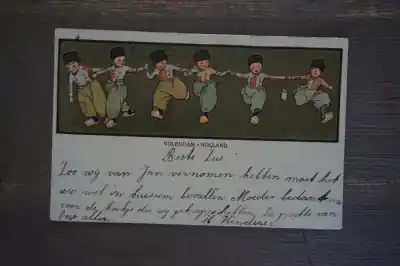 VOLENDAM - HOLLAND.
Beste Lus
Zoo wij van Jan vernomen hebben moet het
uw wel in bussem bevallen Moeder bedankt
voor de koekjes die wij gekregen hebben De groete van
Ons allen